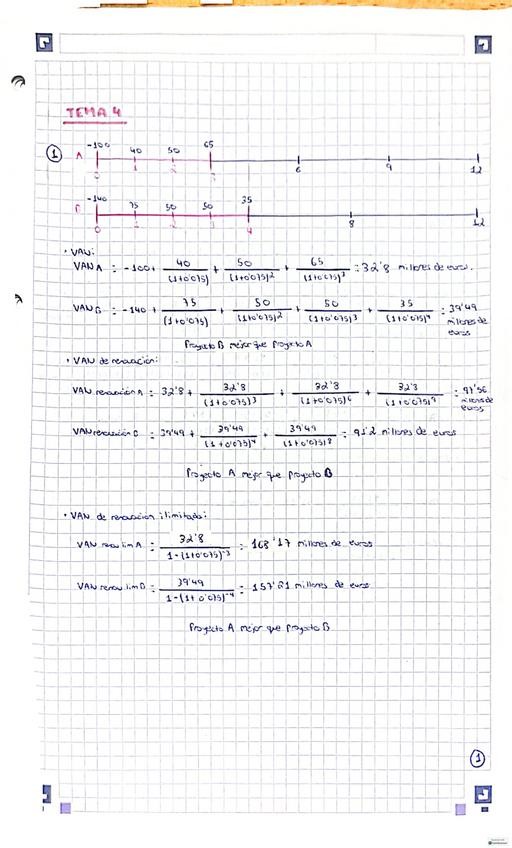 TEMA 4
1 A -100 40 50 65
0 1 2 3 6 9 12
B -140 75 50 50 35
0 1 2 3 4 8 12
· VAN:
VAN A = -100 + 40/(1+0'075) + 50/(1+0'075)² + 65/(1+0'075)³ = 32'8 millones de euros.
VAN B = -140 + 75/(1+0'075) + 50/(1+0'075)² + 50/(1+0'075)³ + 35/(1+0'075)⁴ = 39'49 millones de euros
Proyecto B mejor que Proyecto A
· VAN de renovación:
VAN renovación A = 32'8 + 32'8/(1+0'075)³ + 32'8/(1+0'075)⁶ + 32'8/(1+0'075)⁹ = 97'56 millones de euros
VAN renovación B = 39'49 + 39'49/(1+0'075)⁴ + 39'49/(1+0'075)⁸ = 91'2 millones de euros
Proyecto A mejor que proyecto B
· VAN de renovación ilimitado:
VAN renov lim A = 32'8/1-(1+0'075)⁻³ = 168'17 millones de euros
VAN renov lim B = 39'49/1-(1+0'075)⁻⁴ = 157'21 millones de euros
Proyecto A mejor que proyecto B
1